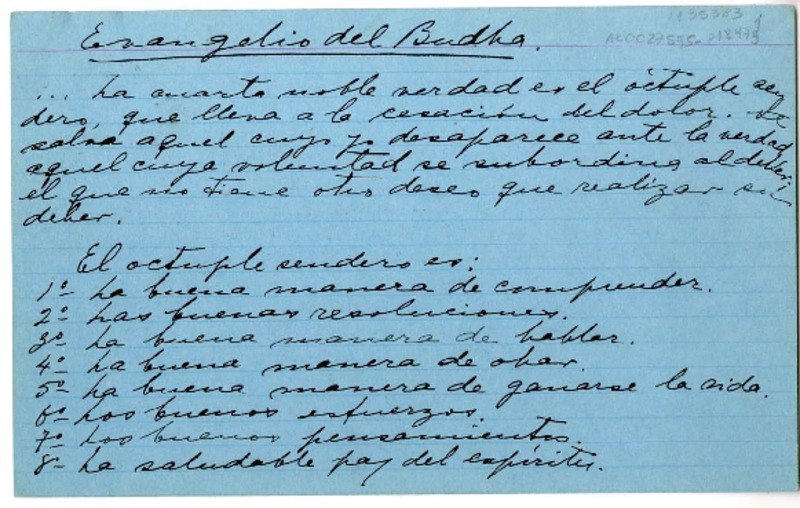 135383
AE0027595
Evangelio del Budha.
... La cuarta noble verdad es el óctuple sen
dero, que lleva a la cesación del dolor. Se
salva aquel cuyo yo desaparece ante la verdad
aquel cuya voluntad se subordina al deber;
el que no tiene otro deseo que realizar su
deber.
El octuple sendero es:
1º La buena manera de comprender.
2º Las buenas resoluciones.
3º La buena manera de hablar.
4º La buena manera de obar.
5º La buena manera de ganarse la vida.
6º Los buenos esfuerzos.
7º Los buenos pensamientos.
8º La saludable paz del espíritu.